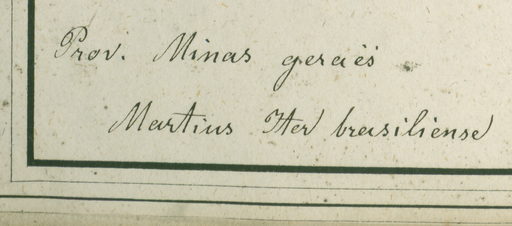 Prov. Minas geraës
Martius Iter brasiliense